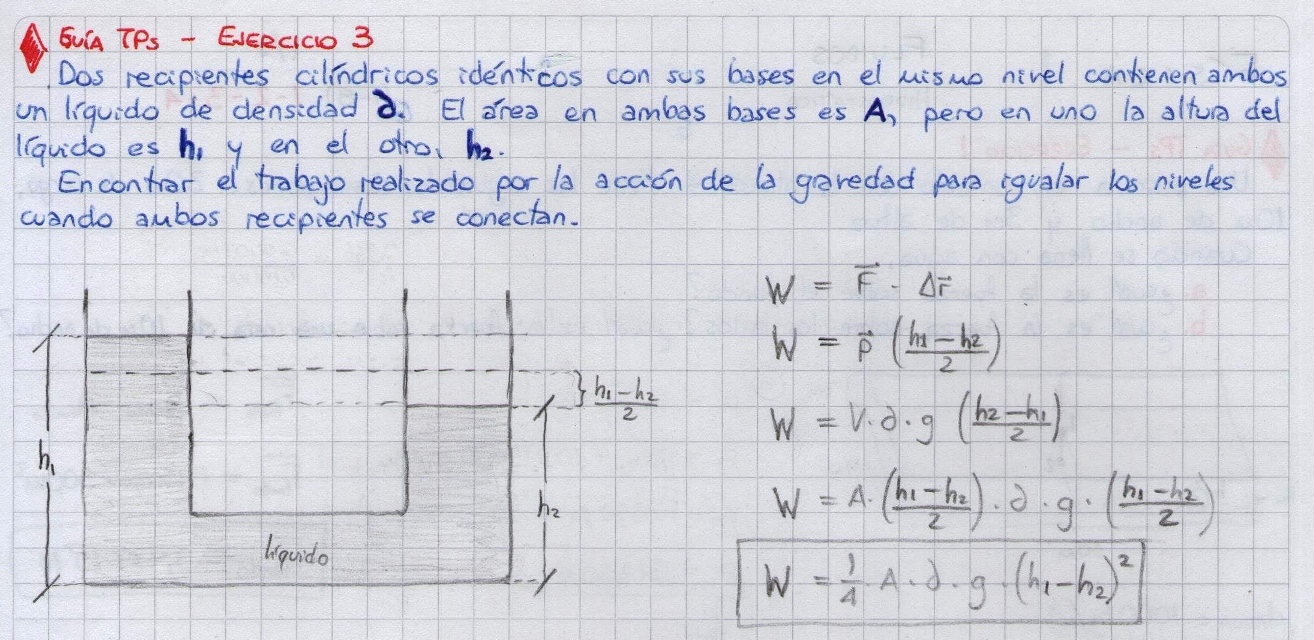 GUÍA TPs - EJERCICIO 3
Dos recipientes cilíndricos idénticos con sus bases en el mismo nivel contienen ambos
un líquido de densidad ∂. El área en ambas bases es A, pero en uno la altura del
líquido es h₁ y en el otro, h₂.
Encontrar el trabajo realizado por la acción de la gravedad para igualar los niveles
cuando ambos recipientes se conectan.
h₁
líquido
h₂
} (h₁-h₂)/2
W = F⃗ · Δr⃗
W = p⃗ ((h₁-h₂)/2)
W = V·∂·g ((h₂-h₁)/2)
W = A·((h₁-h₂)/2)·∂·g·((h₁-h₂)/2)
W = 1/4·A·∂·g·(h₁-h₂)²